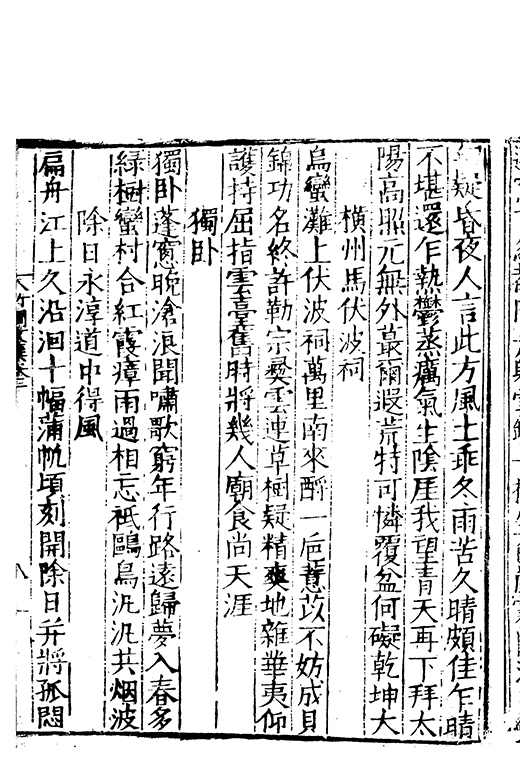 疑昏夜人言此方風土乖冬雨苦久晴頗佳乍晴
不堪還乍熱鬱蒸癘氣生陰厓我望青天再下拜太
陽高照元無外蕞爾遐荒特可憐覆盆何礙乾坤大
橫州馬伏波祠
烏蠻灘上伏波祠萬里南來酹一巵薏苡不妨成貝
錦功名終許勒宗彝雲連草樹疑精爽地雜華夷仰
護持屈指雲臺舊時將幾人廟食尚天涯
獨卧
獨卧蓬窻晚滄浪聞嘯歌窮年行路遠歸夢入春多
綠樹蠻村合紅霞瘴雨過相忘祗鷗鳥汎汎共烟波
除日永淳道中得風
扁舟江上久沿洄十幅蒲帆頃刻開除日并將孤悶
八